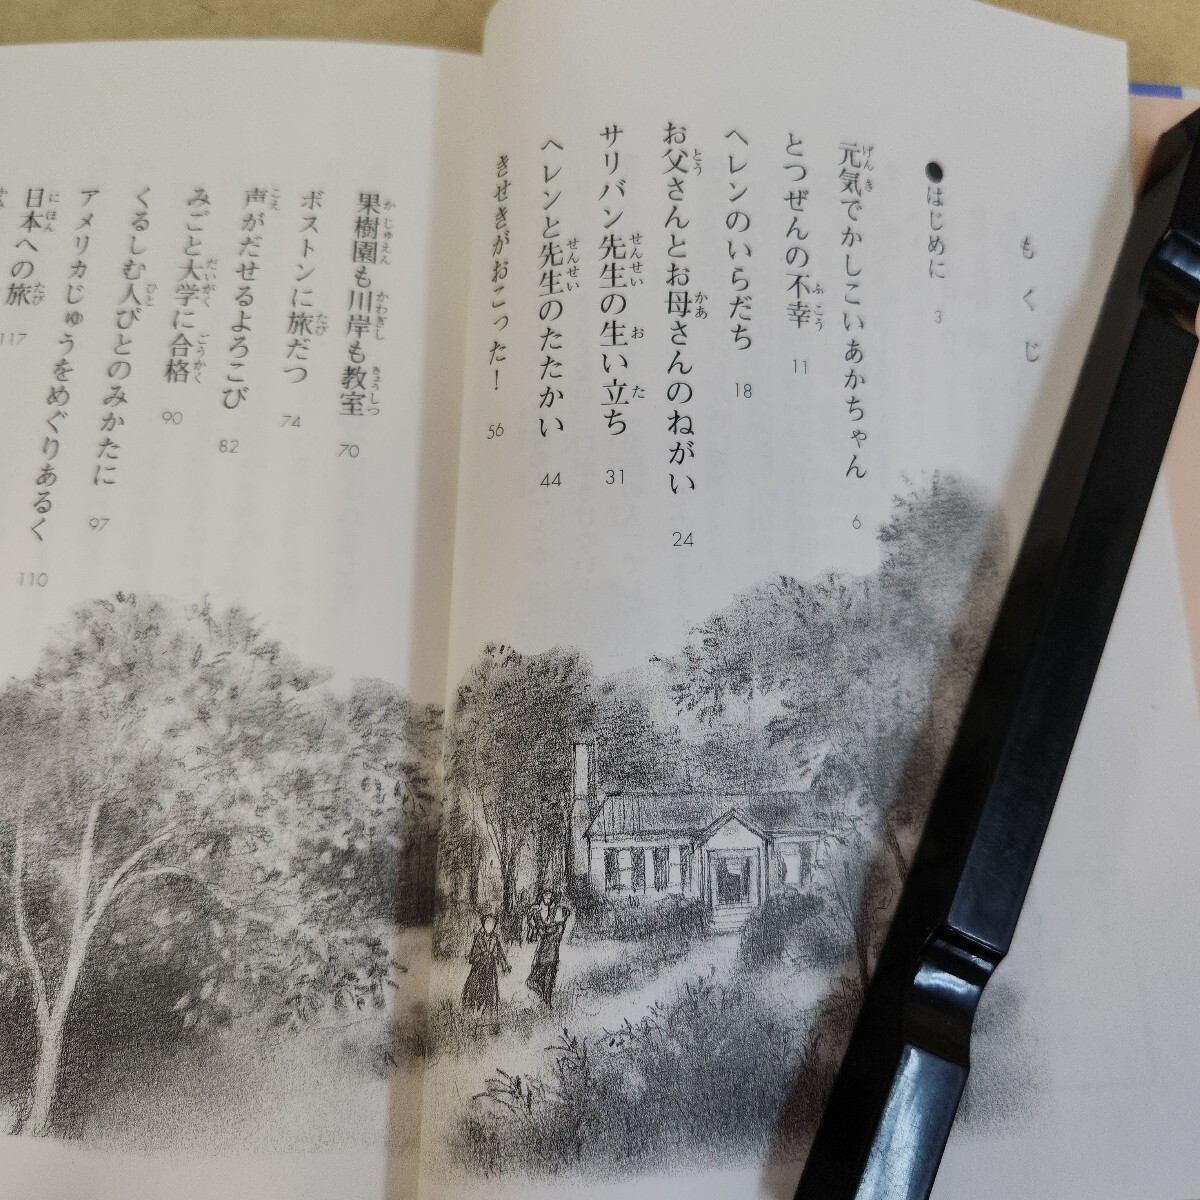 もくじ
●はじめに 3
元気でかしこいあかちゃん 6
げんき
とつぜんの不幸 11
ふこう
ヘレンのいらだち 18
お父さんとお母さんのねがい 24
とう
かあ
サリバン先生の生い立ち 31
せんせい
お
た
ヘレンと先生のたたかい 44
せんせい
きせきがおこった! 56
果樹園も川岸も教室 70
かじゅえん
かわぎし
きょうしつ
ボストンに旅だつ 74
たび
声がだせるよろこび 82
こえ
みごと大学に合格 90
だいがく
ごうかく
くるしむ人びとのみかたに 97
ひと
アメリカじゅうをめぐりあるく 110
日本への旅 117
にほん
たび